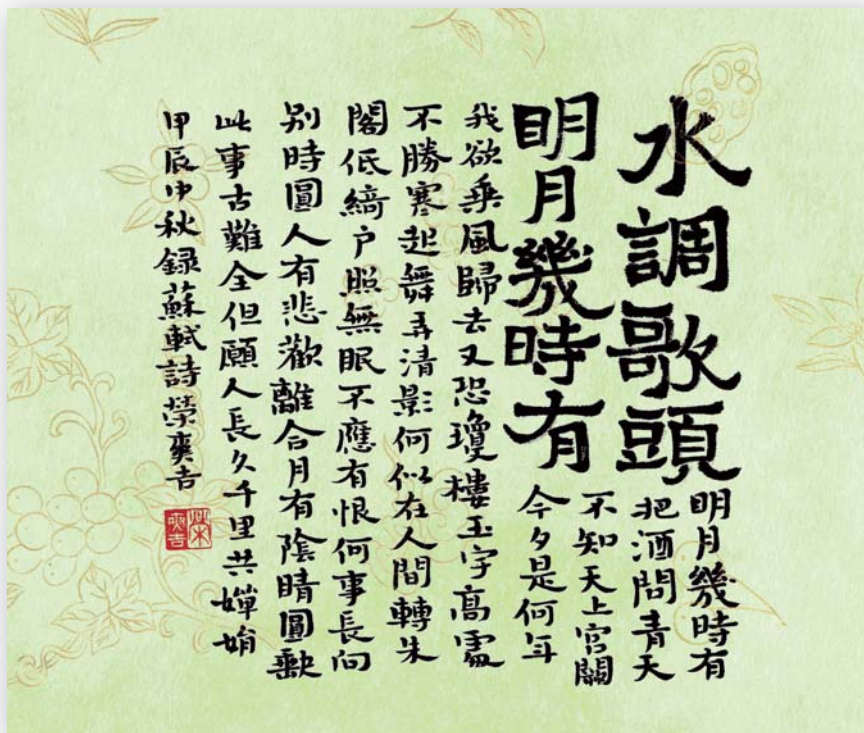 水調歌頭
明月幾時有
明月幾時有
把酒問青天
不知天上宮闕
今夕是何年
我欲乘風歸去又恐瓊樓玉宇高處
不勝寒起舞弄清影何似在人間轉朱
閣低綺户照無眠不應有恨何事長向
别時圓人有悲歡離合月有陰晴圓缺
此事古難全但願人長久千里共嬋娟
甲辰中秋録蘇軾詩榮爽吉
榮爽吉